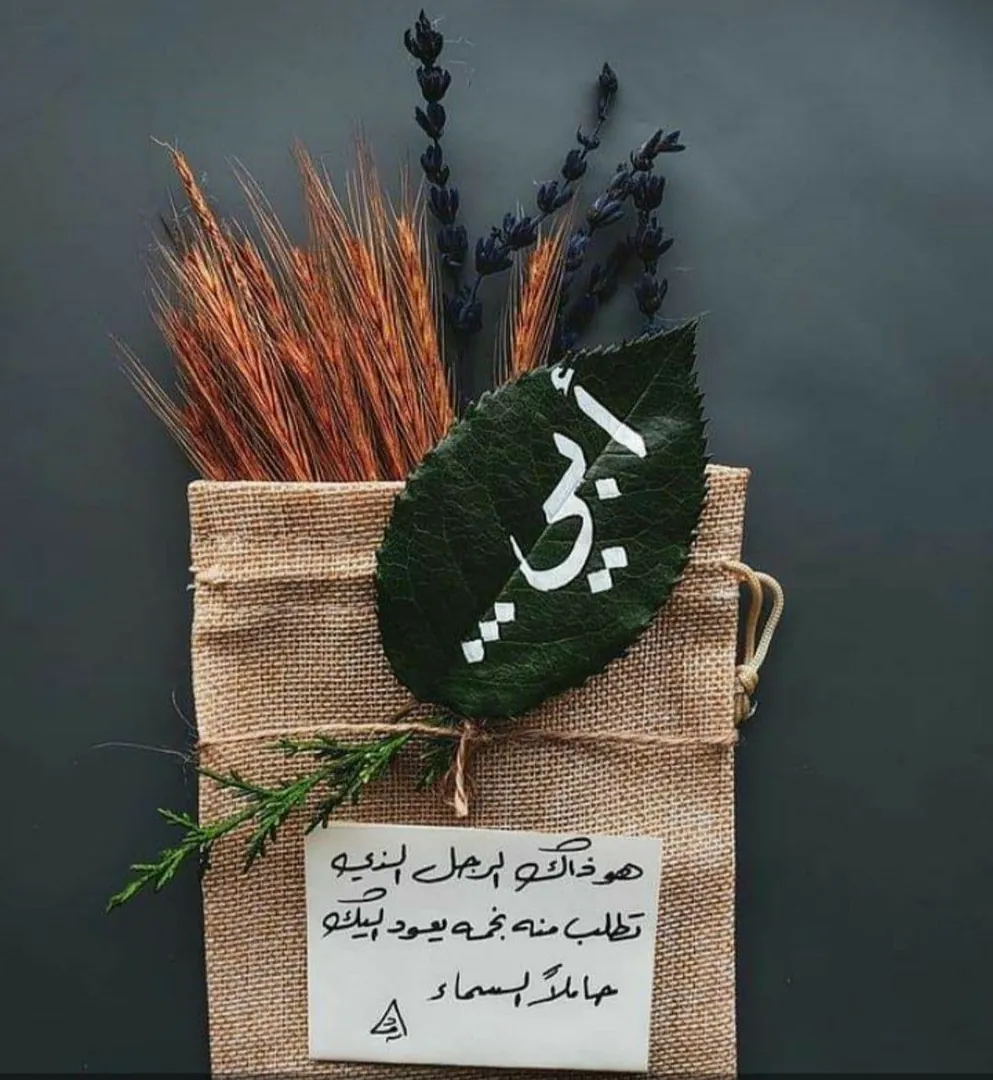 أبي
هو ذاك الرجل الذي
تطلب منه نجمه يعود إليك
حاملاً السماء